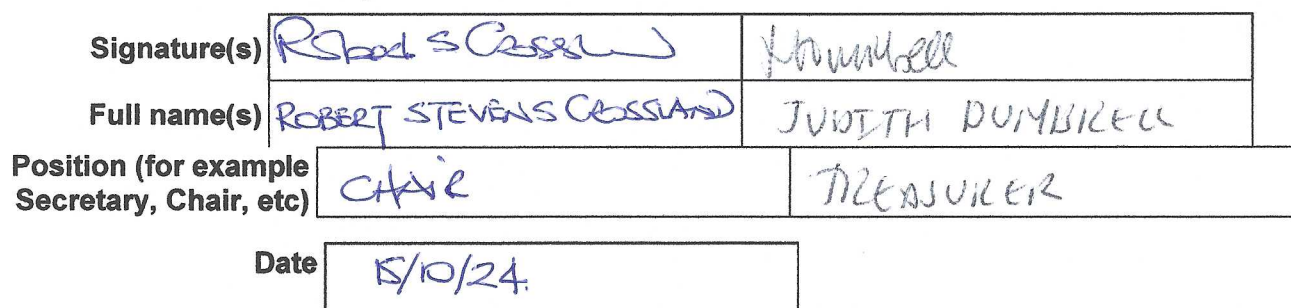 Signature(s) Robert S Crossland
Full name(s) ROBERT STEVENS CROSSLAND JUDITH DUMBRELL
Position (for example
Secretary, Chair, etc) CHAIR TREASURER
Date 15/10/24.